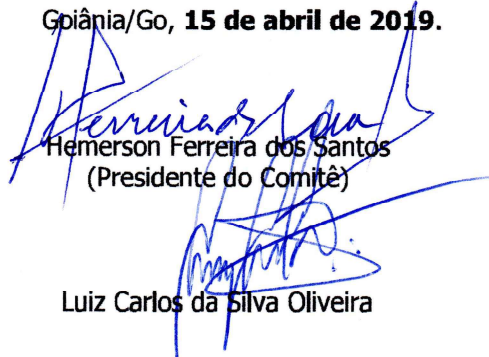 Goiânia/Go, 15 de abril de 2019.
Hemerson Ferreira dos Santos
(Presidente do Comitê)
Luiz Carlos da Silva Oliveira